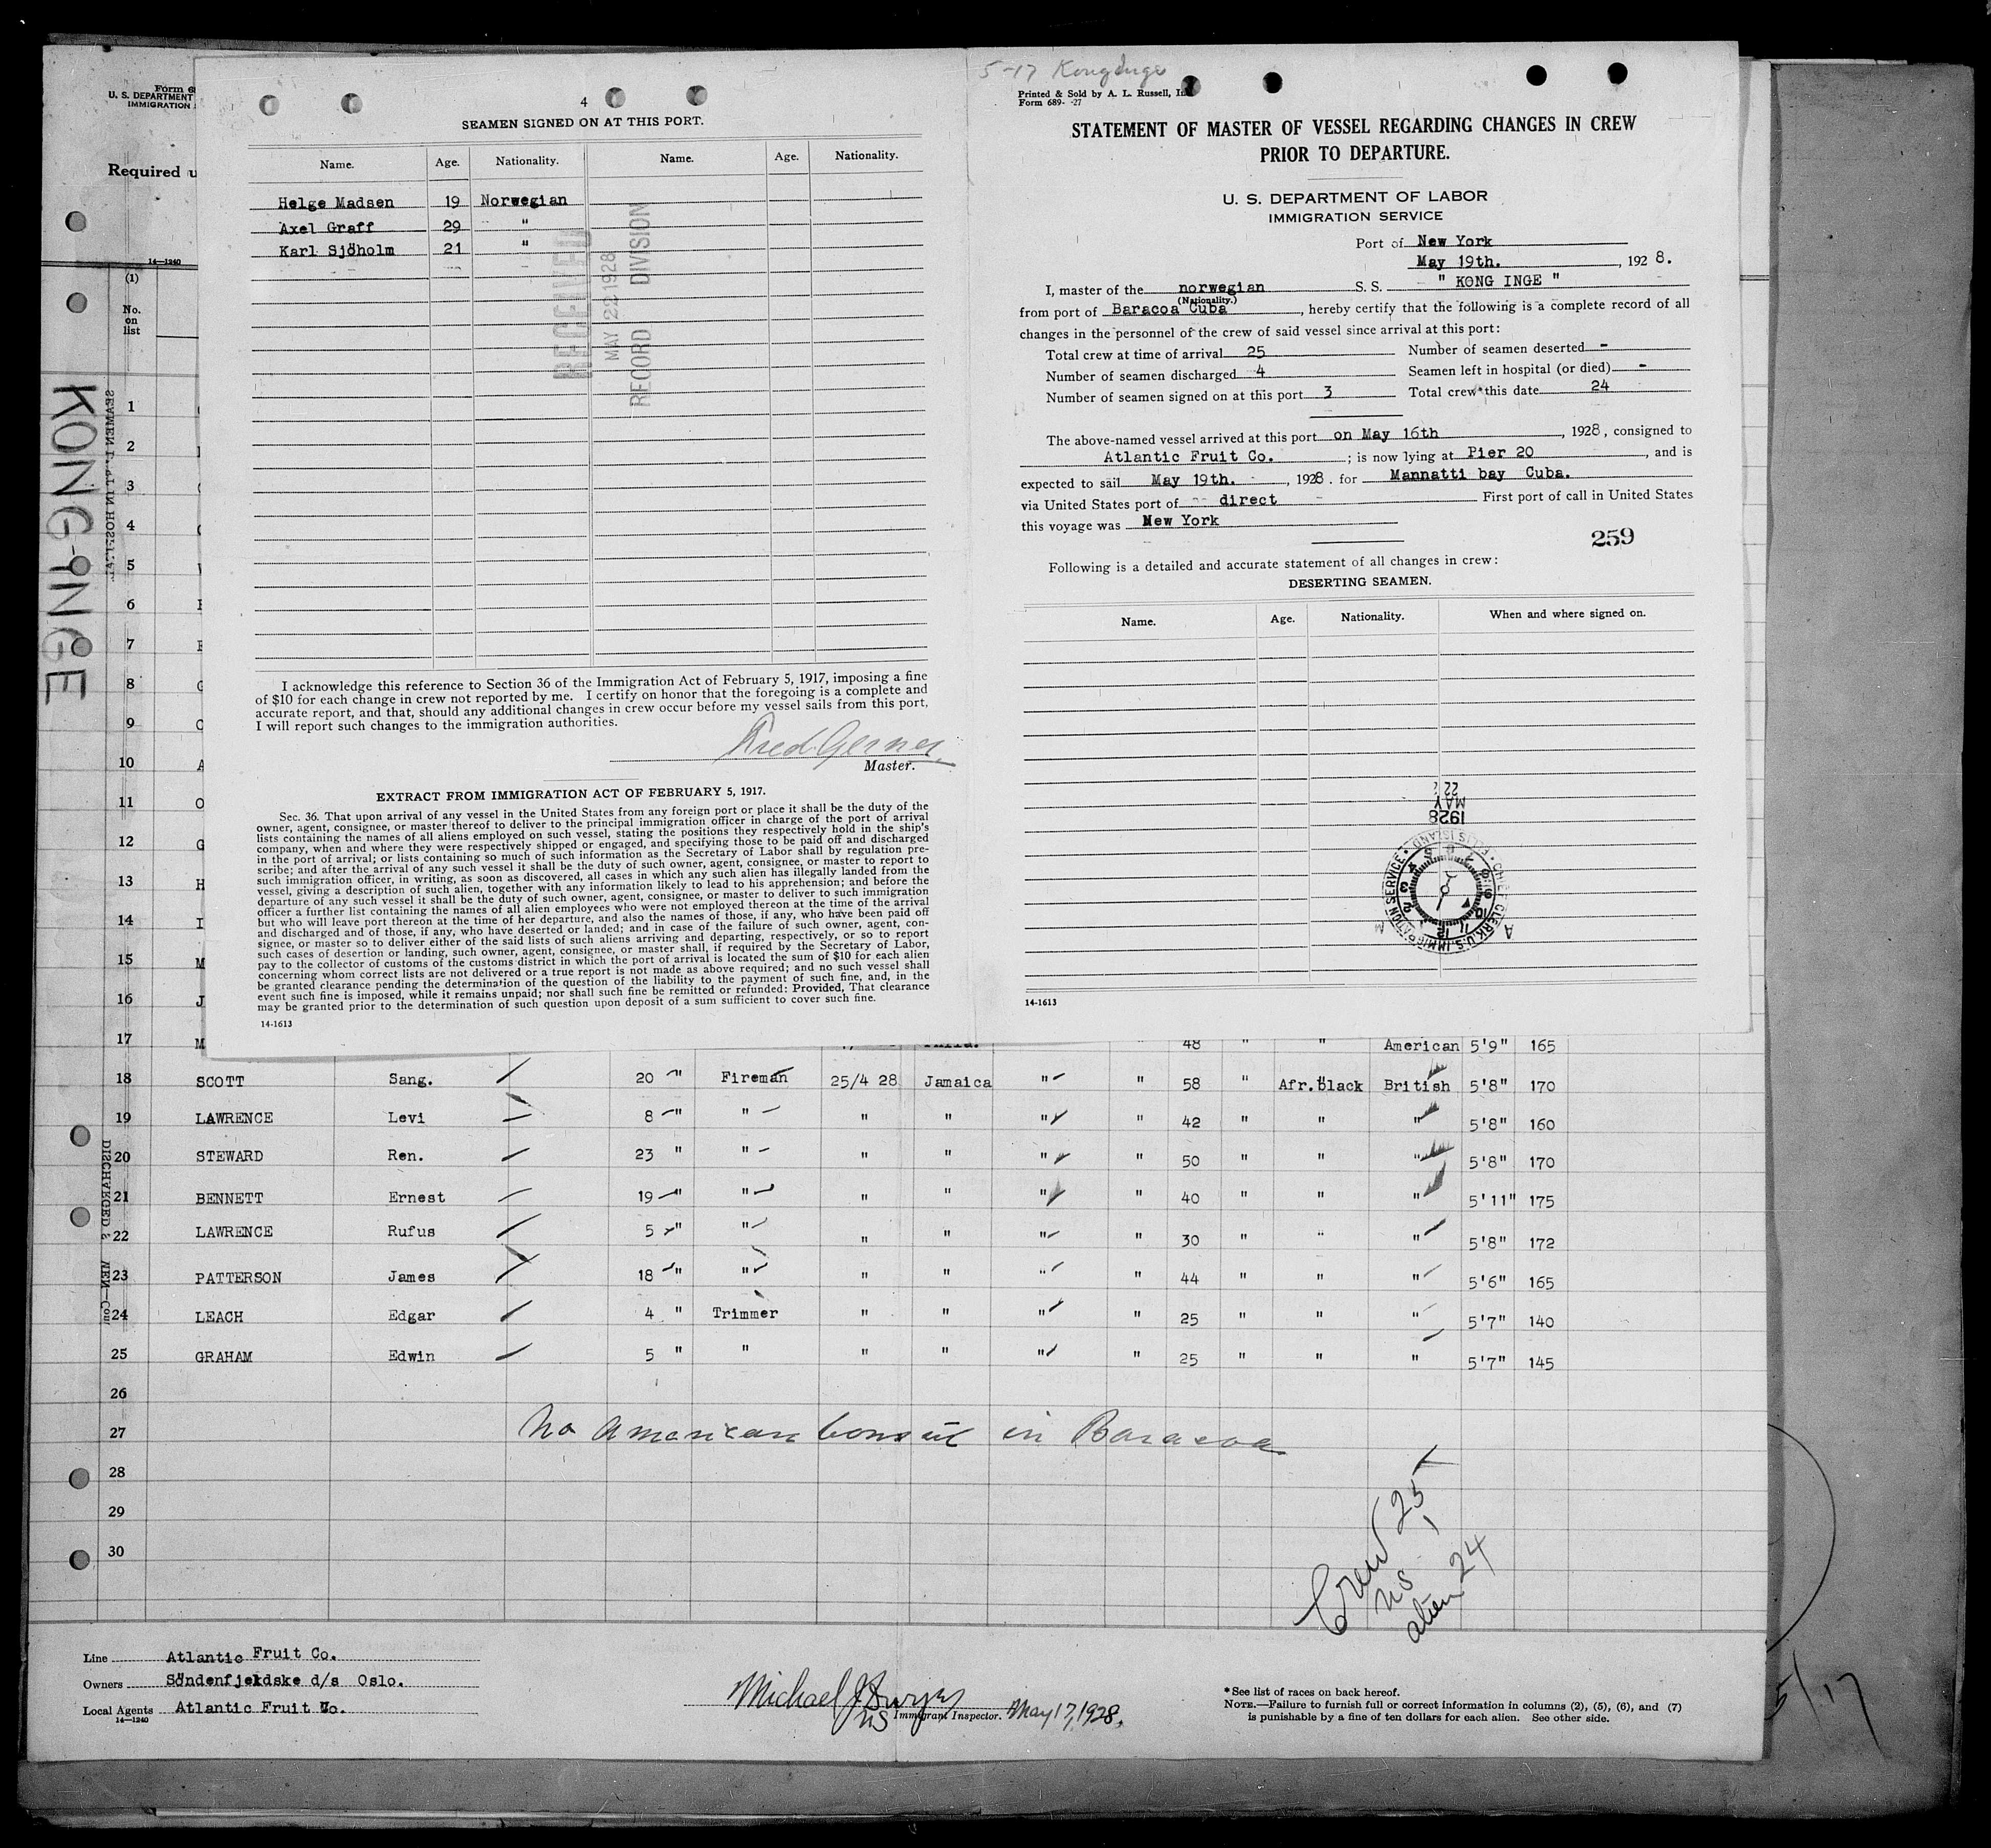 Form 6
U. S. DEPARTMENT
IMMIGRATION
Required u
14—1240
(1)
No.
on
list
KONG-INGE
4
SEAMEN SIGNED ON AT THIS PORT.
Name. Age. Nationality. Name. Age. Nationality.
Helge Madsen 19 Norwegian
Axel Graff 29 "
Karl Sjöholm 21 "
RECEIVED
MAY 22 1928
RECORD DIVISION
I acknowledge this reference to Section 36 of the Immigration Act of February 5, 1917, imposing a fine
of $10 for each change in crew not reported by me. I certify on honor that the foregoing is a complete and
accurate report, and that, should any additional changes in crew occur before my vessel sails from this port,
I will report such changes to the immigration authorities.
Master.
EXTRACT FROM IMMIGRATION ACT OF FEBRUARY 5, 1917.
Sec. 36. That upon arrival of any vessel in the United States from any foreign port or place it shall be the duty of the
owner, agent, consignee, or master thereof to deliver to the principal immigration officer in charge of the port of arrival
lists containing the names of all aliens employed on such vessel, stating the positions they respectively hold in the ship's
company, when and where they were respectively shipped or engaged, and specifying those to be paid off and discharged
in the port of arrival; or lists containing so much of such information as the Secretary of Labor shall by regulation pre-
scribe; and after the arrival of any such vessel it shall be the duty of such owner, agent, consignee, or master to report to
such immigration officer, in writing, as soon as discovered, all cases in which any such alien has illegally landed from the
vessel, giving a description of such alien, together with any information likely to lead to his apprehension; and before the
departure of any such vessel it shall be the duty of such owner, agent, consignee, or master to deliver to such immigration
officer a further list containing the names of all alien employees who were not employed thereon at the time of the arrival
but who will leave port thereon at the time of her departure, and also the names of those, if any, who have been paid off
and discharged and of those, if any, who have deserted or landed; and in case of the failure of such owner, agent, con-
signee, or master so to deliver either of the said lists of such aliens arriving and departing, respectively, or so to report
such cases of desertion or landing, such owner, agent, consignee, or master shall, if required by the Secretary of Labor,
pay to the collector of customs of the customs district in which the port of arrival is located the sum of $10 for each alien
concerning whom correct lists are not delivered or a true report is not made as above required; and no such vessel shall
be granted clearance pending the determination of the question of the liability to the payment of such fine, and, in the
event such fine is imposed, while it remains unpaid; nor shall such fine be remitted or refunded: Provided, That clearance
may be granted prior to the determination of such question upon deposit of a sum sufficient to cover such fine.
14-1613
5-17 Kong Inge
Printed & Sold by A. L. Russell, In
Form 689- -27
STATEMENT OF MASTER OF VESSEL REGARDING CHANGES IN CREW
PRIOR TO DEPARTURE.
U. S. DEPARTMENT OF LABOR
IMMIGRATION SERVICE
Port of New York
May 19th. , 1928.
I, master of the norwegian S. S. " KONG INGE "
(Nationality.)
from port of Baracoa Cuba , hereby certify that the following is a complete record of all
changes in the personnel of the crew of said vessel since arrival at this port:
Total crew at time of arrival 25 Number of seamen deserted -
Number of seamen discharged 4 Seamen left in hospital (or died) -
Number of seamen signed on at this port 3 Total crew this date 24
The above-named vessel arrived at this port on May 16th , 1928, consigned to
Atlantic Fruit Co. ; is now lying at Pier 20 , and is
expected to sail May 19th. , 1928. for Mannatti bay Cuba.
via United States port of direct First port of call in United States
this voyage was New York
259
Following is a detailed and accurate statement of all changes in crew:
DESERTING SEAMEN.
Name. Age. Nationality. When and where signed on.
1928
MAY
22
CHIEF CLERK U.S. IMMIGRATION SERVICE • ELLIS ISLAND •
14-1613
1
2
3
4
5
6
7
8 G
9
10 A
11 O
12 G
13 H
14 I
15 M
16 J
17 M 48 " " American 5'9" 165
18 SCOTT Sang. 20 " Fireman 25/4 28 Jamaica " " 58 " Afr.Black British 5'8" 170
19 LAWRENCE Levi 8 " " " " " " 42 " " " 5'8" 160
20 STEWARD Ren. 23 " " " " " " 50 " " " 5'8" 170
21 BENNETT Ernest 19 " " " " " " 40 " " " 5'11" 175
22 LAWRENCE Rufus 5 " " " " " " 30 " " " 5'8" 172
23 PATTERSON James 18 " " " " " " 44 " " " 5'6" 165
24 LEACH Edgar 4 " Trimmer " " " " 25 " " " 5'7" 140
25 GRAHAM Edwin 5 " " " " " " 25 " " " 5'7" 145
26
27 No American Consul in Baracoa
28
29
30
Crew 25
US 1
alien 24
Line Atlantic Fruit Co.
Owners Söndenfjeldske d/s Oslo.
Local Agents Atlantic Fruit Co.
14—1240
Michael J. Dwyer
US Immigrant Inspector. May 17, 1928.
*See list of races on back hereof.
NOTE.—Failure to furnish full or correct information in columns (2), (5), (6), and (7)
is punishable by a fine of ten dollars for each alien. See other side.
5/17